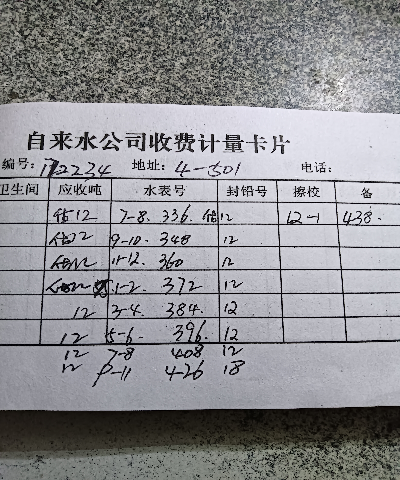 自来水公司收费计量卡片
编号: 172234 地址: 4-501 电话:
卫生间 应收吨 水表号 封铅号 擦校 备
估12 7-8. 336. 估12 12-1 438.
估12 9-10. 348 12
估12 11-12. 360 12
估12 1-2. 372 12
12 3-4. 384. 12
12 5-6. 396. 12
12 7-8 408 12
12 9-11 426 18